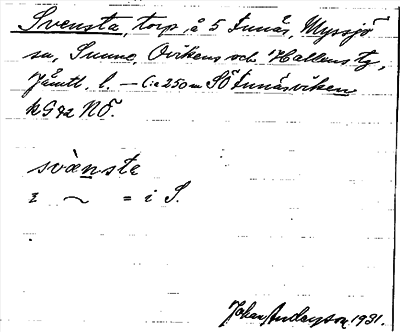 Svensta, torp, å 5 Funäs, Myssjö
sn, Sunne, Ovikens och Hallens tg,
Jämtl. l. — C:a 250 m SÖ Funäsviken
kG 92 NÖ.
svànsta
i ~ = i S.
Johan Anderson 1931.